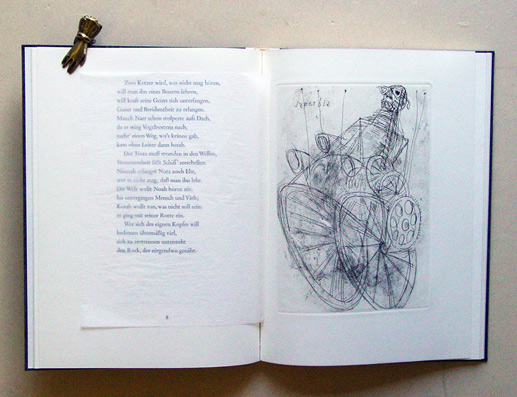 Zum Ketzer wird, wer nicht mag hören,
will man ihn eines Bessern lehren,
will kraft seine Geists sich unterfangen,
Gunst und Berühmtheit zu erlangen.
Manch Narr schon stolperte aufs Dach,
da er stieg Vogelnestern nach,
sucht' einen Weg, wo's keinen gab,
kam ohne Leiter dann herab.
Der Trotz muß stranden in den Wellen,
Vermessenheit läßt Schiff' zerschellen.
Niemals erlanget Nutz noch Ehr,
wer es nicht mag, daß man ihn lehr.
Die Welt wollt Noah hören nit:
bis untergingen Mensch und Vieh;
Korah wollt tun, was nicht soll sein:
er ging mit seiner Rotte ein.
Wer sich des eignen Kopfes will
bedienen übermäßig viel,
sich zu zertrennen untersteht
den Rock, der nirgendwo genäht.
8